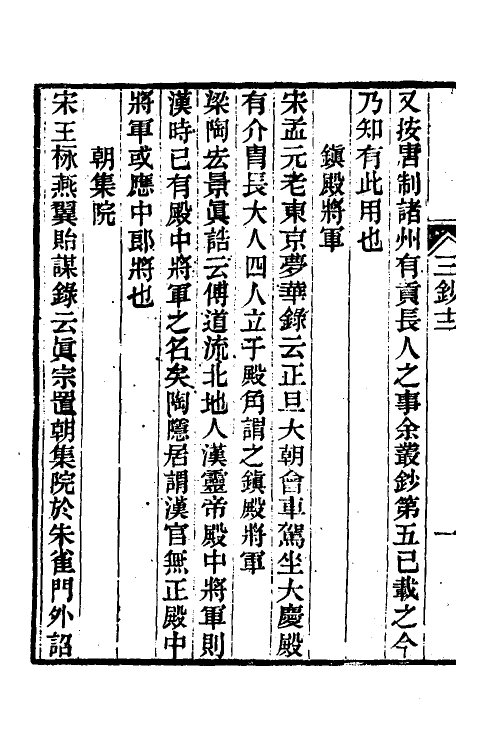 三鈔十二
一
又按唐制諸州有貢長人之事余叢鈔第五已載之今
乃知有此用也
鎭殿將軍
宋孟元老東京夢華錄云正旦大朝會車駕坐大慶殿
有介胄長大人四人立于殿角謂之鎭殿將軍
梁陶宏景眞誥云傅道流北地人漢靈帝殿中將軍則
漢時已有殿中將軍之名矣陶隱居謂漢官無正殿中
將軍或應中郞將也
朝集院
宋王栐燕翼貽謀錄云眞宗置朝集院於朱雀門外詔